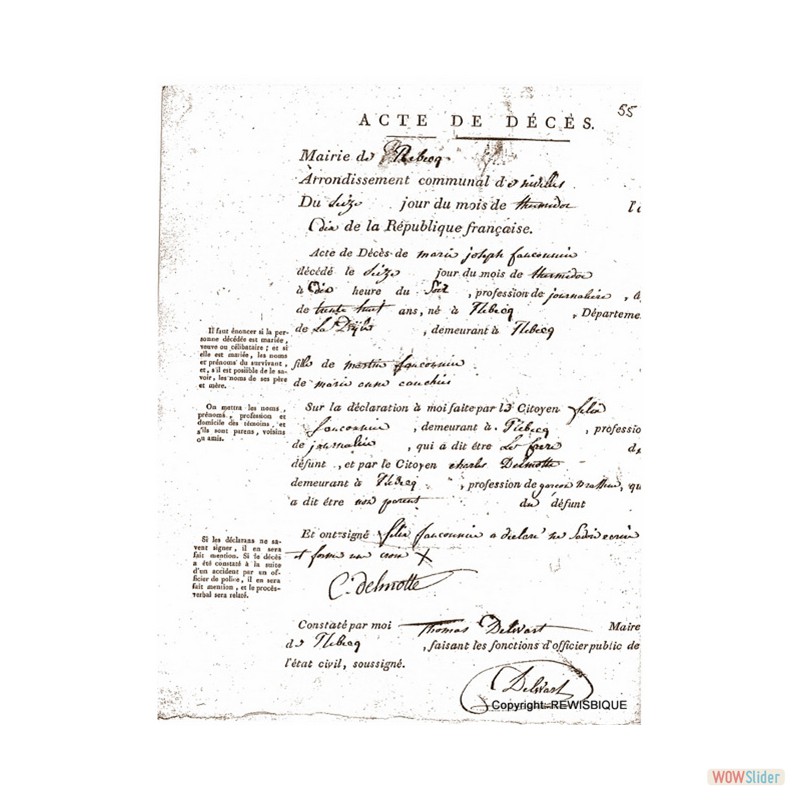 55
ACTE DE DÉCÈS.
Mairie de Rebecq
Arrondissement communal de nivelles
Du Seize jour du mois de thermidor l'a
Dix de la République française.
Acte de Décès de marie joseph fauconnier
décédé le Seize jour du mois de thermidor
à Dix heure du Soir, profession de journalière, â
de trente huit ans, né à Rebecq, Départeme
de La Dyle, demeurant à Rebecq
Il faut énoncer si la per-
sonne décédée est mariée,
veuve ou célibataire; et si
elle est mariée, les noms
et prénoms du survivant,
et, s'il est possible de le sa-
voir, les noms de ses père
et mère.
fille de martin fauconnier
de marie anne
On mettra les noms,
prénoms, profession et
domicile des témoins, et
s'ils sont parens, voisins
ou amis.
Sur la déclaration à moi faite par le Citoyen felix
fauconnier, demeurant à Rebecq, professio
de journalier, qui a dit être Le frere d
défunt, et par le Citoyen charles Delmotte
demeurant à Rebecq, profession de garcon, qu
a dit être non parent du défunt
Si les déclarans ne sa-
vent signer, il en sera
fait mention. Si le décès
a été constaté à la suite
d'un accident par un of-
ficier de police, il en sera
fait mention, et le procès-
verbal sera relaté.
Et ont signé felix fauconnier a declaré ne Savoir ecrire
et forme une croix X
C. delmotte
Constaté par moi Thomas Delwart Maire
de Rebecq, faisant les fonctions d'officier public de
l'état civil, soussigné.
Delwart
Copyright: REWISBIQUE
WOWSlider